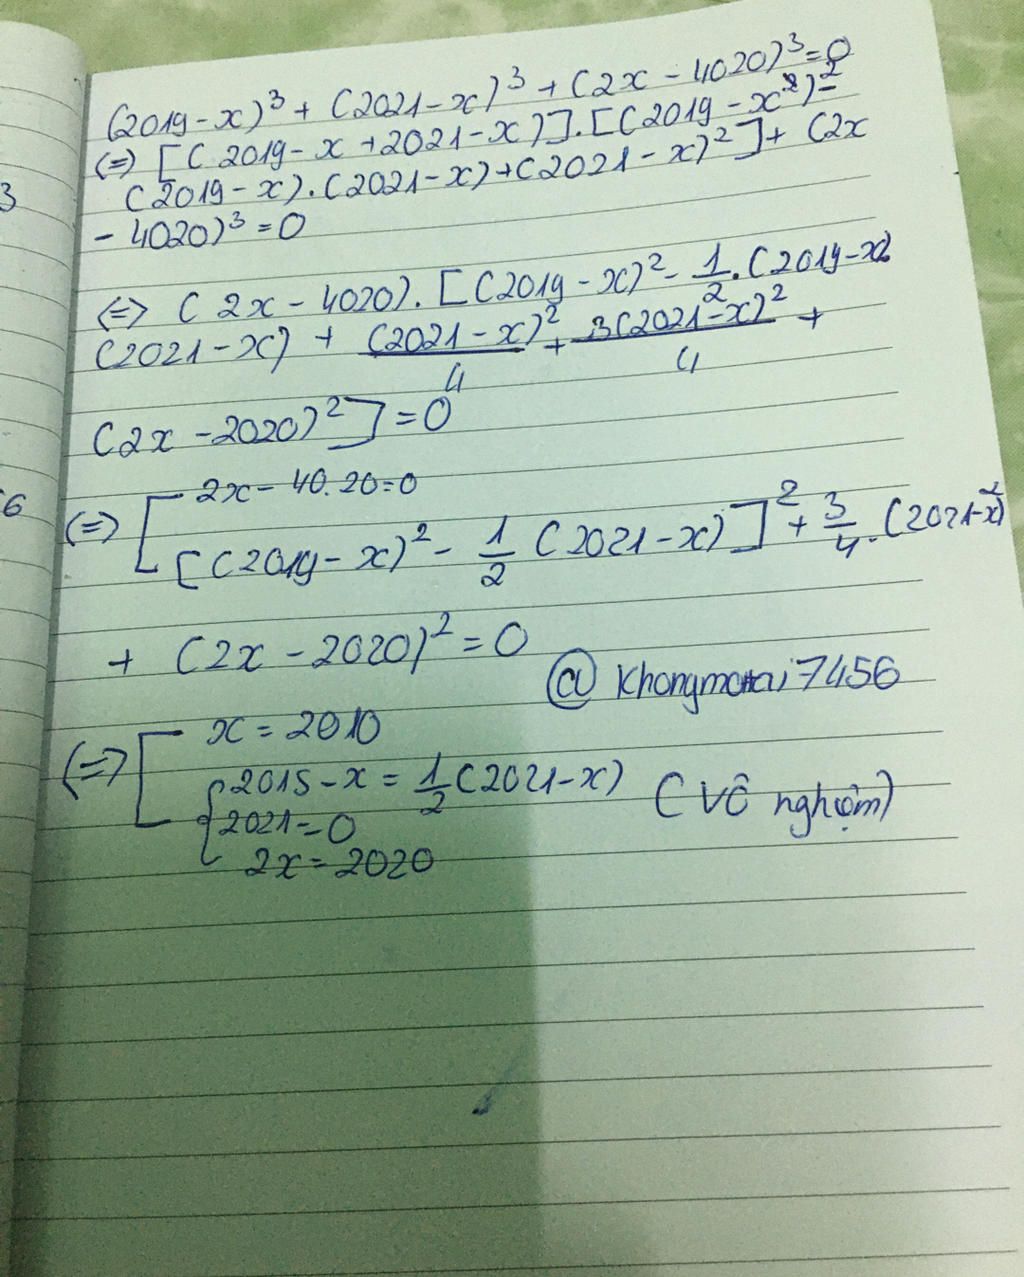 (2019-x)³ + (2021-x)³ + (2x - 4020)³ = 0
(=) [(2019-x+2021-x)].[(2019-x²)²-
(2019-x).(2021-x)+(2021-x)²]+(2x
- 4020)³ = 0
3
(=) (2x-4020).[(2019-x)² - 1/2.(2019-x)
(2021-x) + (2021-x)²/4 + 3(2021-x)²/4 +
(2x-2020)²] = 0
6
(=) [ 2x - 40.20=0
[(2019-x)² - 1/2 (2021-x)]² + 3/4.(2021-x)²
+ (2x - 2020)² = 0
@ Khongmotai7456
(=) [ x = 2010
{ 2015-x = 1/2 (2021-x) (Vô nghiệm)
2021-=0
2x = 2020